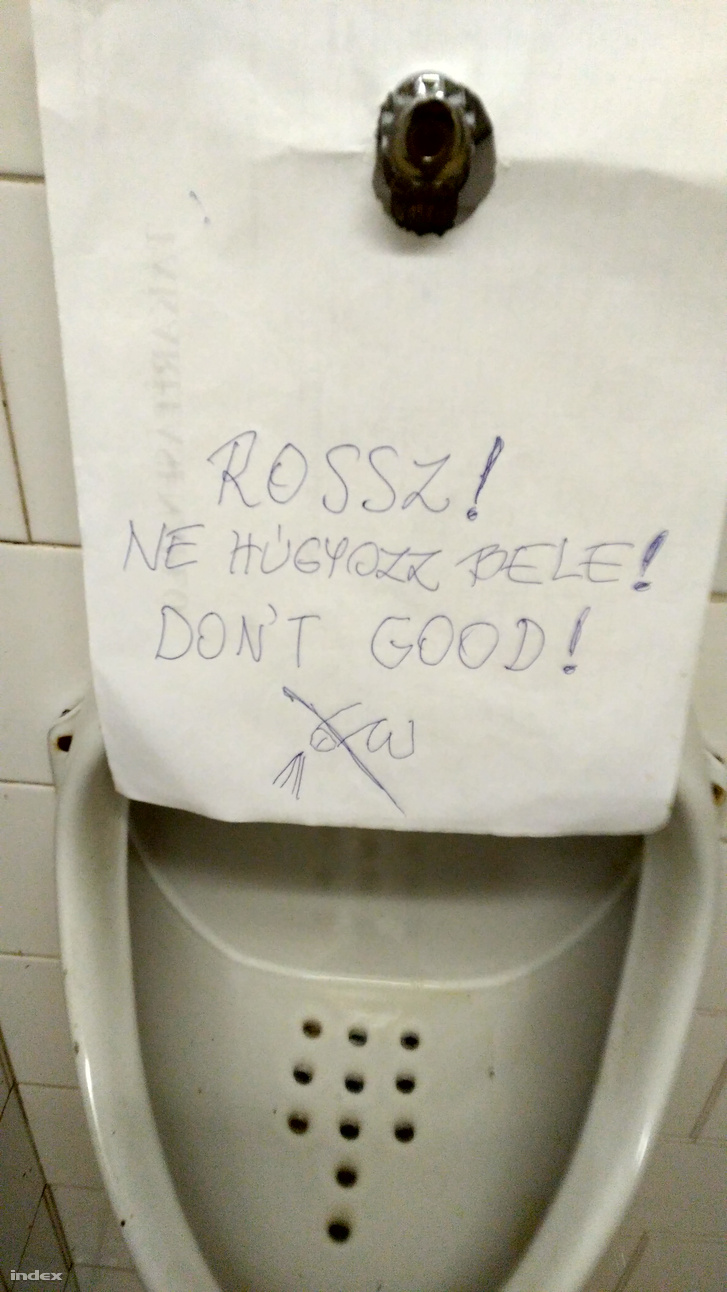 ROSSZ!
NE HÚGYOZZ BELE!
DON'T GOOD!
index